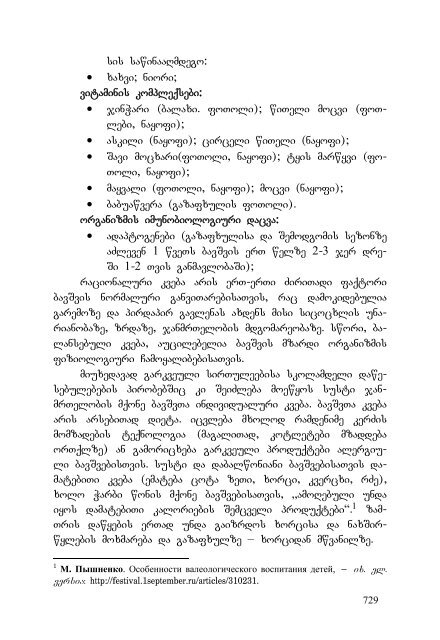 სის საწინააღმდეგო:
• ხახვი; ნიორი;
ვიტამინის კომპლექსები:
• ჯინჭარი (ბალახი. ფოთოლი); წითელი მოცვი (ფოთ-
ლები, ნაყოფი);
• ასკილი (ნაყოფი); ცირცელი წითელი (ნაყოფი);
• შავი მოცხარი(ფოთოლი, ნაყოფი); ტყის მარწყვი (ფო-
თოლი, ნაყოფი);
• მაყვალი (ფოთოლი, ნაყოფი); მოცვი (ნაყოფი);
• ბაბუაწვერა (გაზაფხულის ფოთოლი).
ორგანიზმის იმუნობიოლოგიური დაცვა:
• ადაპტოგენები (გაზაფხულისა და შემოდგომის სეზონზე
აძლევენ 1 წვეთს ბავშვის ერთ წელზე 2-3 ჯერ დღე-
ში 1-2 თვის განმავლობაში);
რაციონალური კვება არის ერთ-ერთი ძირითადი ფაქტორი
ბავშვის ნორმალური განვითარებისათვის, რაც დამოკიდებულია
გარემოზე და პირდაპირ გავლენას ახდენს მისი სიცოცხლის უნა-
რიანობაზე, ზრდაზე, ჯანმრთელობის მდგომარეობაზე. სწორი, ბა-
ლანსებული კვება, აუცილებელია ბავშვის მზარდი ორგანიზმის
ფიზიოლოგიური ჩამოყალიბებისათვის.
მიუხედავად გარკვეული სირთულეებისა სკოლამდელი დაწე-
სებულებების პირობებშიც კი შეიძლება მოეწყოს სუსტი ჯან-
მრთელობის მქონე ბავშვთა ინდივიდუალური კვება. ბავშვთა კვება
არის არსებითად დიეტა. იცვლება მხოლოდ რამდენიმე კერძის
მომზადების ტექნოლოგია (მაგალითად, კოტლეტები მზადდება
ორთქლზე) ან გამორიცხება გარკვეული პროდუქტები ალერგიუ-
ლი ბავშვებისთვის. სუსტი და დაბალწონიანი ბავშვებისათვის და-
მატებითი კვება (ემატება ცოტა ზეთი, ხორცი, კვერცხი, რძე),
ხოლო ჭარბი წონის მქონე ბავშვებისათვის, „ამოღებული უნდა
იყოს დამატებითი კალორიების შემცველი პროდუქტები“.1 ზამ-
თრის დაწყების ერთად უნდა გაიზრდოს ხორცისა და ნახშირ-
წყლების მოხმარება და გაზაფხულზე – ხორციდან მწვანილზე.
1 М. Пышненко. Особенности валеологического воспитания детей, – იხ. ელ.
ვერსია http://festival.1september.ru/articles/310231.
729